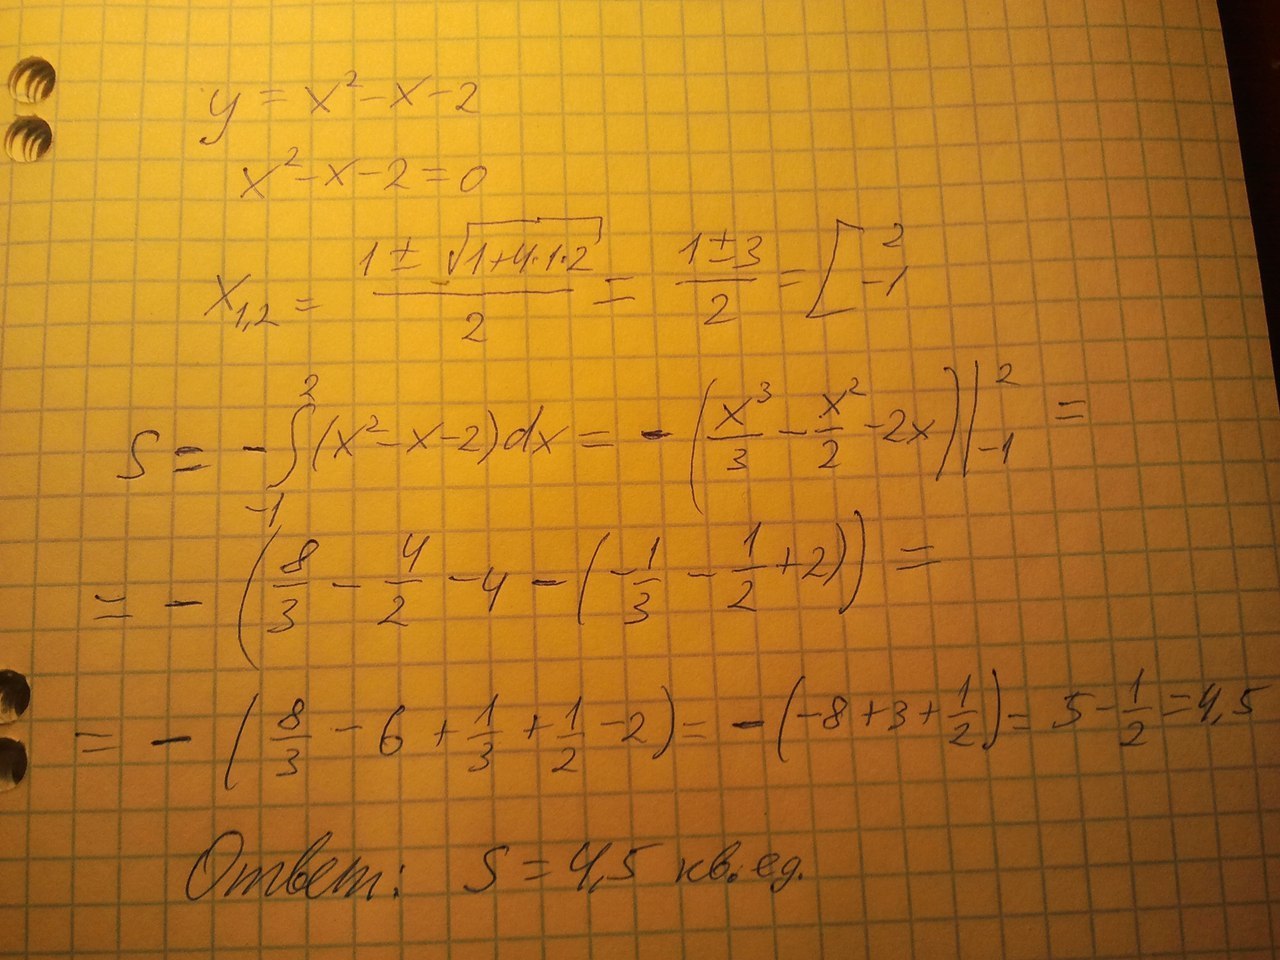 y = x² - x - 2
x² - x - 2 = 0
x₁,₂ = (1 ± √(1+4·1·2))/2 = (1 ± 3)/2 = [ 2 -1
S = - ∫₋₁² (x² - x - 2) dx = - (x³/3 - x²/2 - 2x) |₋₁² =
= - (8/3 - 4/2 - 4 - (-1/3 - 1/2 + 2)) =
= - (8/3 - 6 + 1/3 + 1/2 - 2) = - (-8 + 3 + 1/2) = 5 - 1/2 = 4,5
Ответ: S = 4,5 кв. ед.